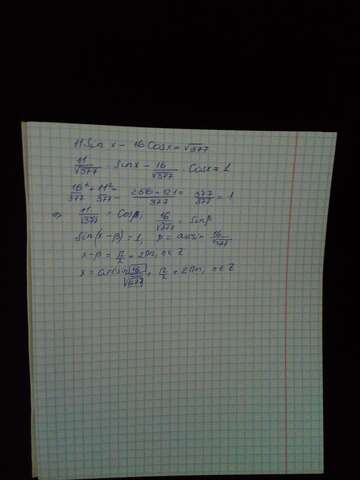 11 Sin x - 16 Cos x = √377
11/√377 · Sin x - 16/√377 · Cos x = 1
16²/377 + 11²/377 = (256 + 121)/377 = 377/377 = 1
=> 11/√377 = Cos β, 16/√377 = Sin β
Sin(x - β) = 1, β = arcsin 16/√377
x - β = π/2 + 2πn, n ∈ Z
x = arcsin 16/√377 + π/2 + 2πn, n ∈ Z